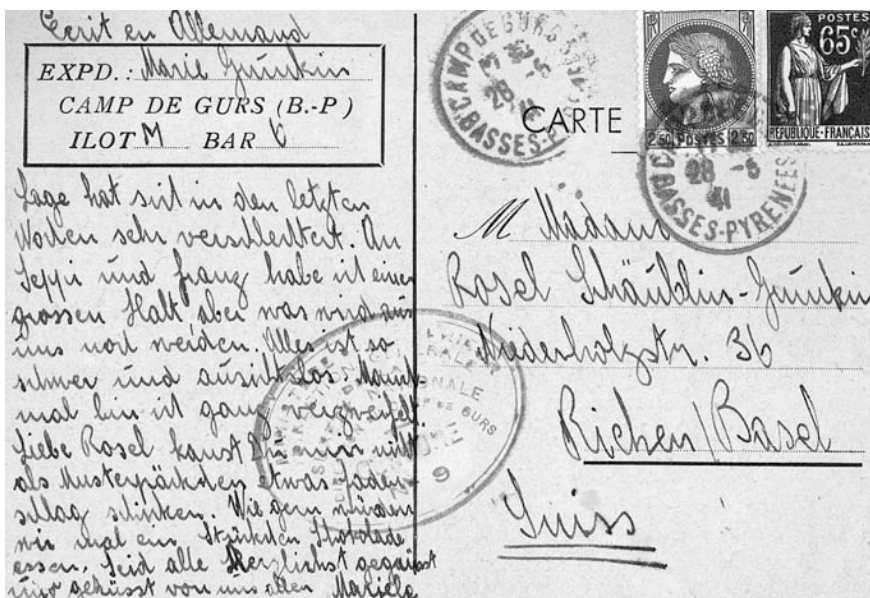 Ecrit en Allemand
EXPD.: Marie Grünkin
CAMP DE GURS (B.-P)
ILOT M BAR 6
Lage hat sich in den letzten
Wochen sehr verschlechtert. An
Seppi und Franz habe ich einen
grossen Halt aber was wird aus
uns noch werden. Alles ist so
schwer und aussichtslos. Manch
mal bin ich ganz verzweifelt.
Liebe Rosel kannst Du mir nicht
als Musterpäckchen etwas Faden-
schlag schicken. Wie gern würden
wir mal ein Stückchen Schokolade
essen. Seid alle herzlichst gegrüsst
und geküsst von uns allen Mariele
CAMP DE GURS
28
BASSES-P
CARTE
2.50 POSTES 2.50
POSTES
65c
REPUBLIQUE-FRANÇAISE
28 -5
41
BASSES-PYRENEES
M Madame
Rosel Schäublin-Grünkin
Niederholzstr. 36
Riehen/Basel
Suiss
DE GURS
9